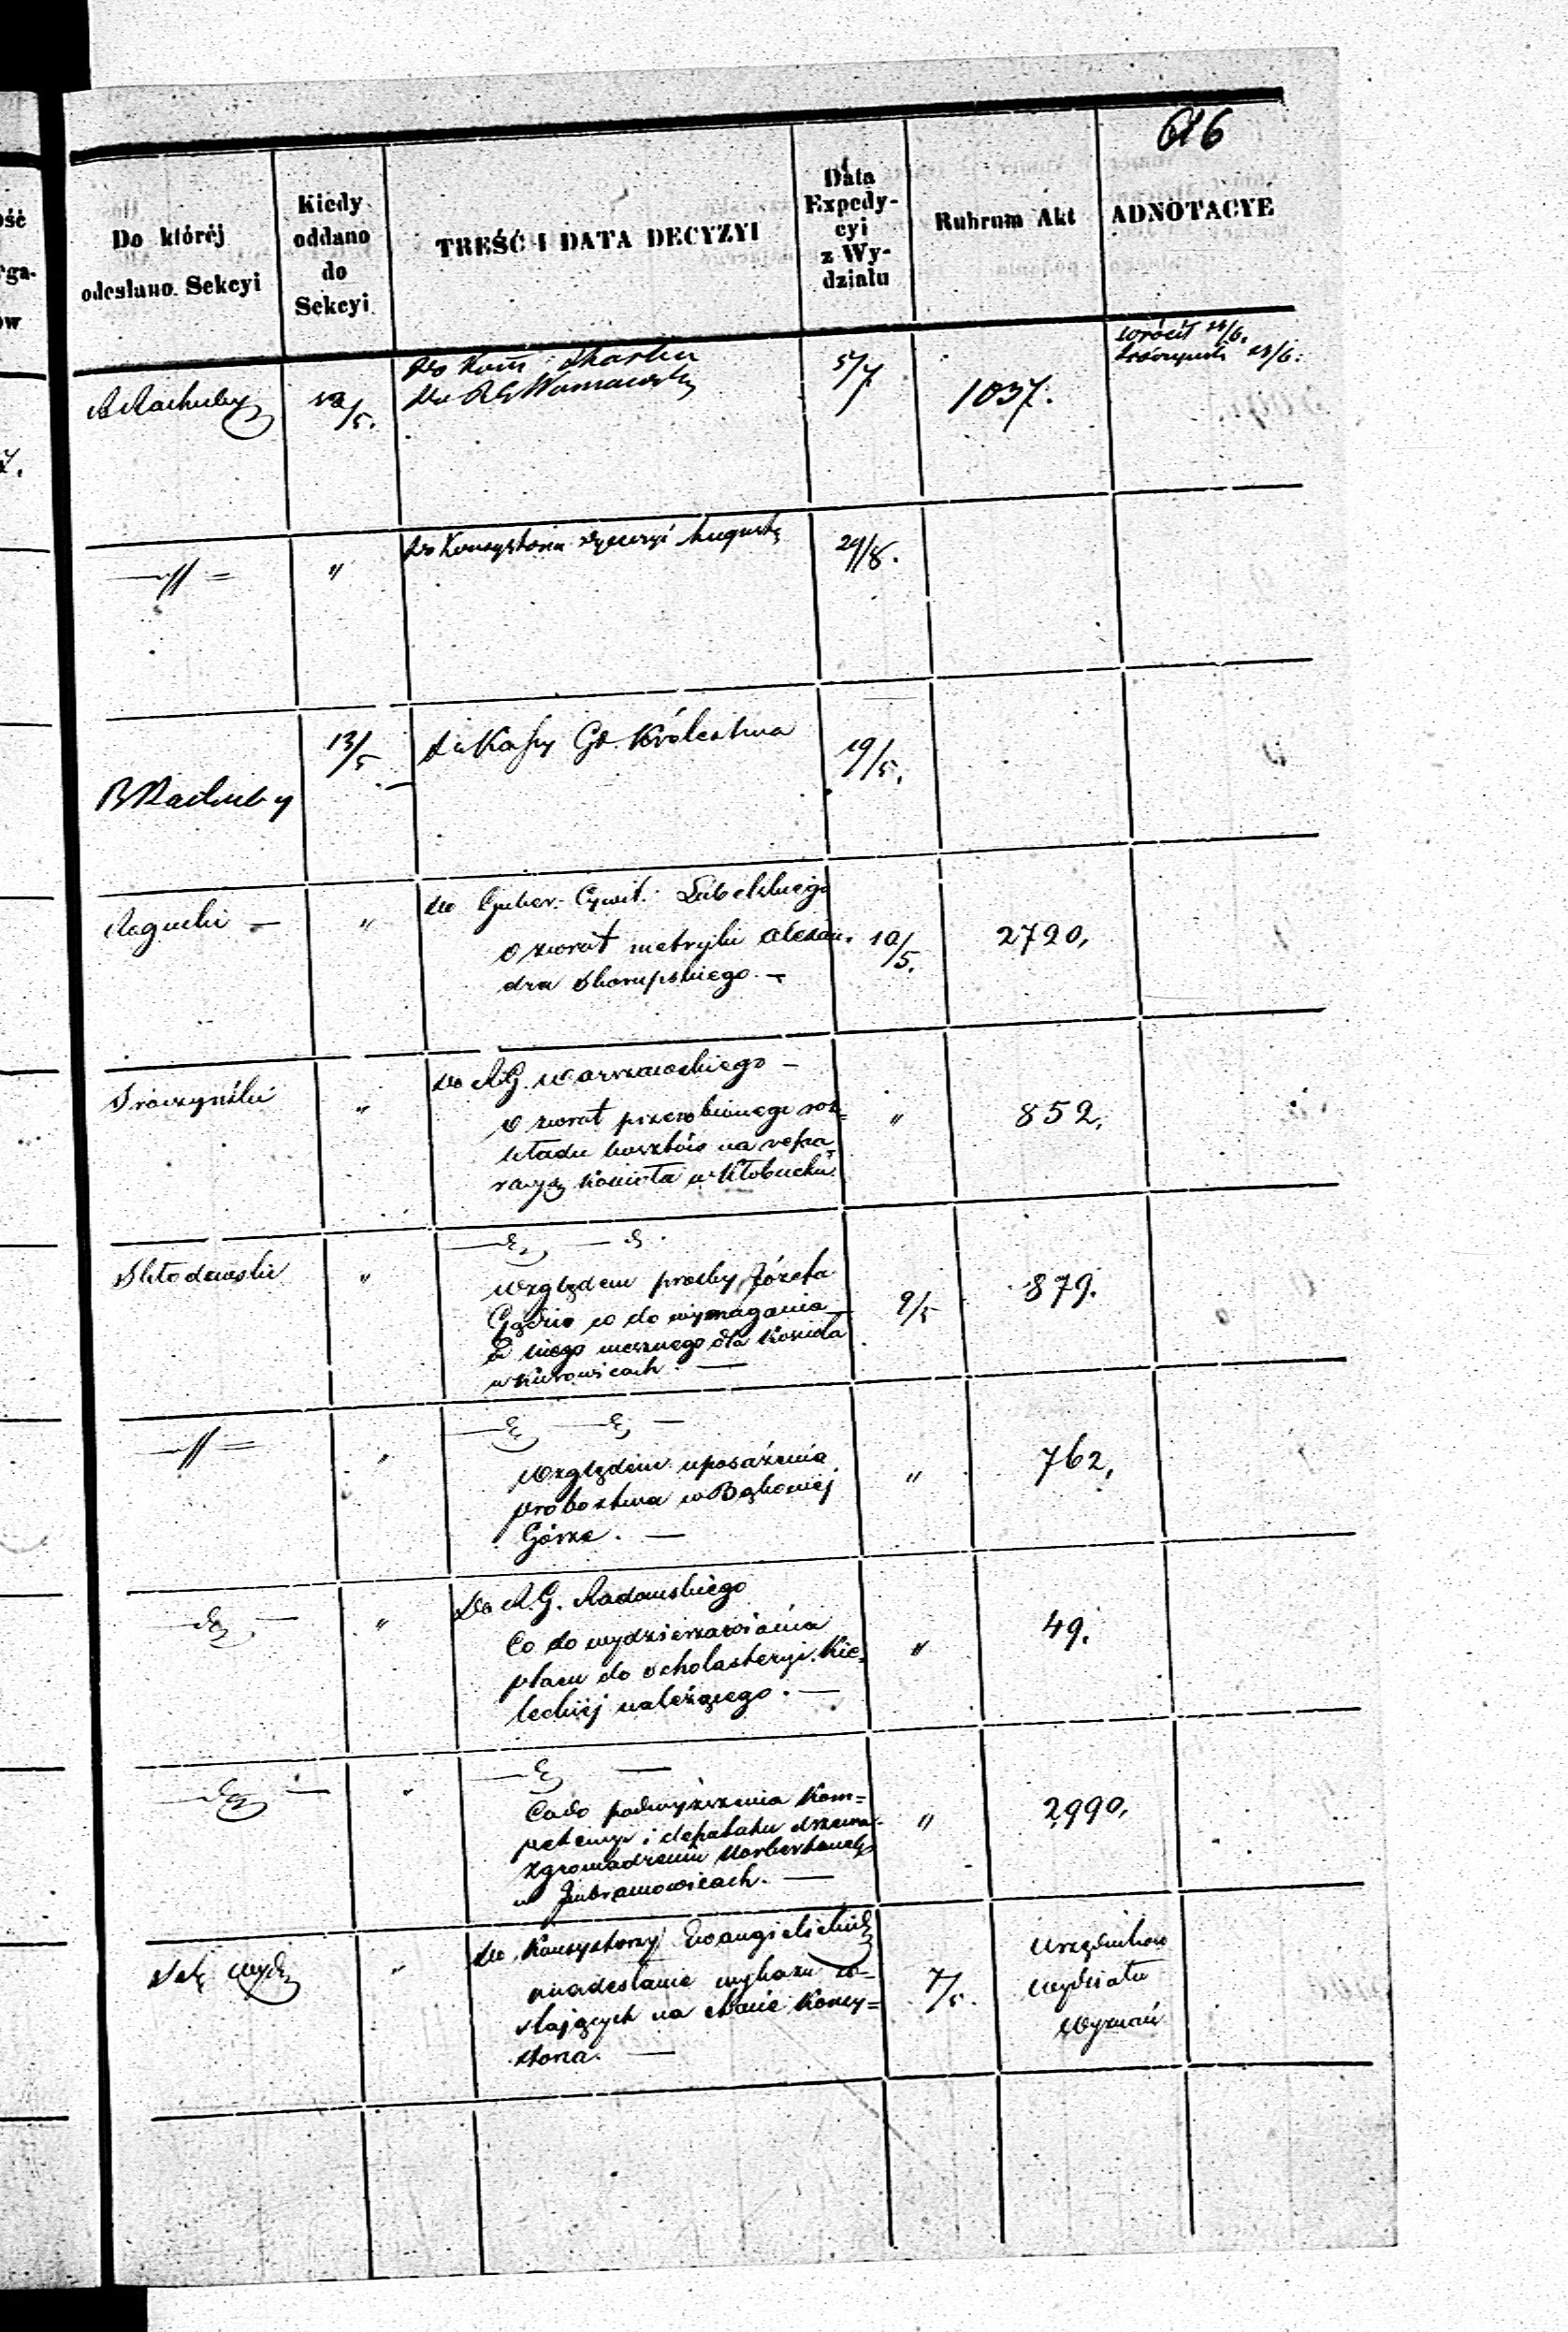 616
Do któréj
odesłano Sekcyi
Kiedy
oddano
do
Sekcyi
TREŚĆ I DATA DECYZYI
Data
Expedy-
cyi
z Wy-
działu
Rubrum Akt
ADNOTACYE
A Rachuby
13/5.
Do Kom Skarbu
Do RG Warszawsk
5/7
1037.
wrócił 24/6.
"
Do Konsystorza Dyecezyi August
24/8.
B Rachuby
13/5
Do Kassy Gł. Królestwa
19/5.
Rogucki —
"
Do Guber. Cywil. Lubelskiego
o zwrot metryki Alexan-
dra Skorupskiego. —
10/5.
2790.
Troczyński
"
Do R.G. Warszawskiego —
o zwrot przerobionego roz=
kładu kosztów na repa
racyą kościoła w Kłobucku
"
852.
Skłodowski
"
względem prośby Józefa
co do wymagania
niego mesznego dla kościoła
w Kurowicach. —
9/5
879.
"
względem uposażenia
probostwa w Bąkowiej
Górze. —
"
762.
"
Do R.G. Radomskiego
Co do wydzierżawiania
placu do scholasteryi Kie=
leckiej należącego. —
"
49.
"
Co do podwyższenia kom=
petencyi i deputatu drzewa
zgromadzeniu Norbertanek
w Imbramowicach. —
"
2990.
"
Do Konsystorzy Ewangielickich
o nadesłanie wykazu zo=
stających na etacie Konsy=
storza. —
7/5.
Urzędników
Wydziału
Wyznań